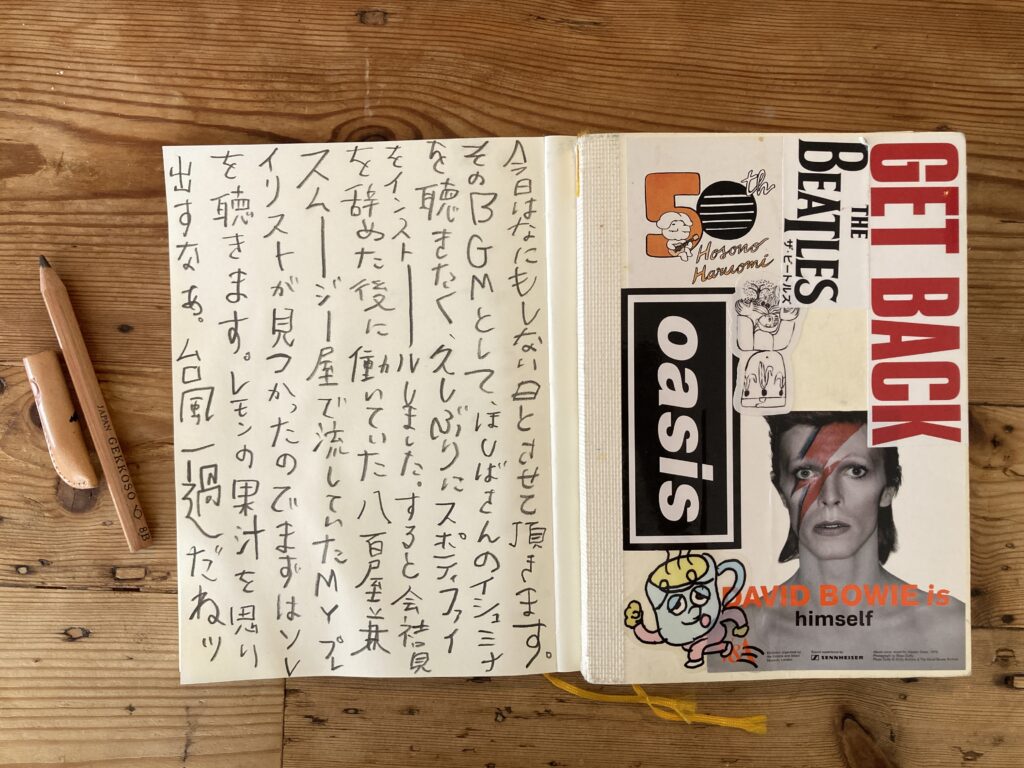 今日はなにもしない日とさせて頂きます。
そのBGMとして、ほしばさんのイシュミナ
を聴きたく、久しぶりにスポティファイ
をインストールしました。すると会社員
を辞めた後に働いていた八百屋兼
スムージー屋で流していたMYプレ
イリストが見つかったのでまずはソレ
を聴きます。レモンの果汁を思い
出すなぁ。台風一過だねッ
JAPAN GEKKOSO 8B
50th
Hosono
Haruomi
THE
BEATLES
ザ・ビートルズ
GET BACK
oasis
DAVID BOWIE is
himself
SENNHEISER